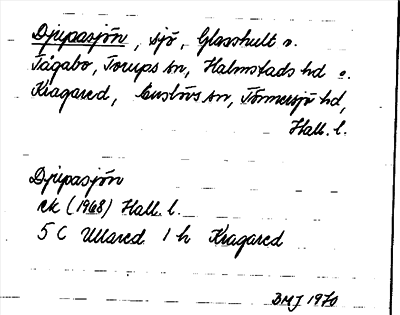 Djupasjön, sjö, Glasshult o.
Fågabo, Torups sn, Halmstads hd o.
Kragared, Enslövs sn, Tönnersjö hd,
Hall. l.
Djupasjön
ek (1968) Hall. l.
5 C Ullared 1 h Kragared
BMJ 1970